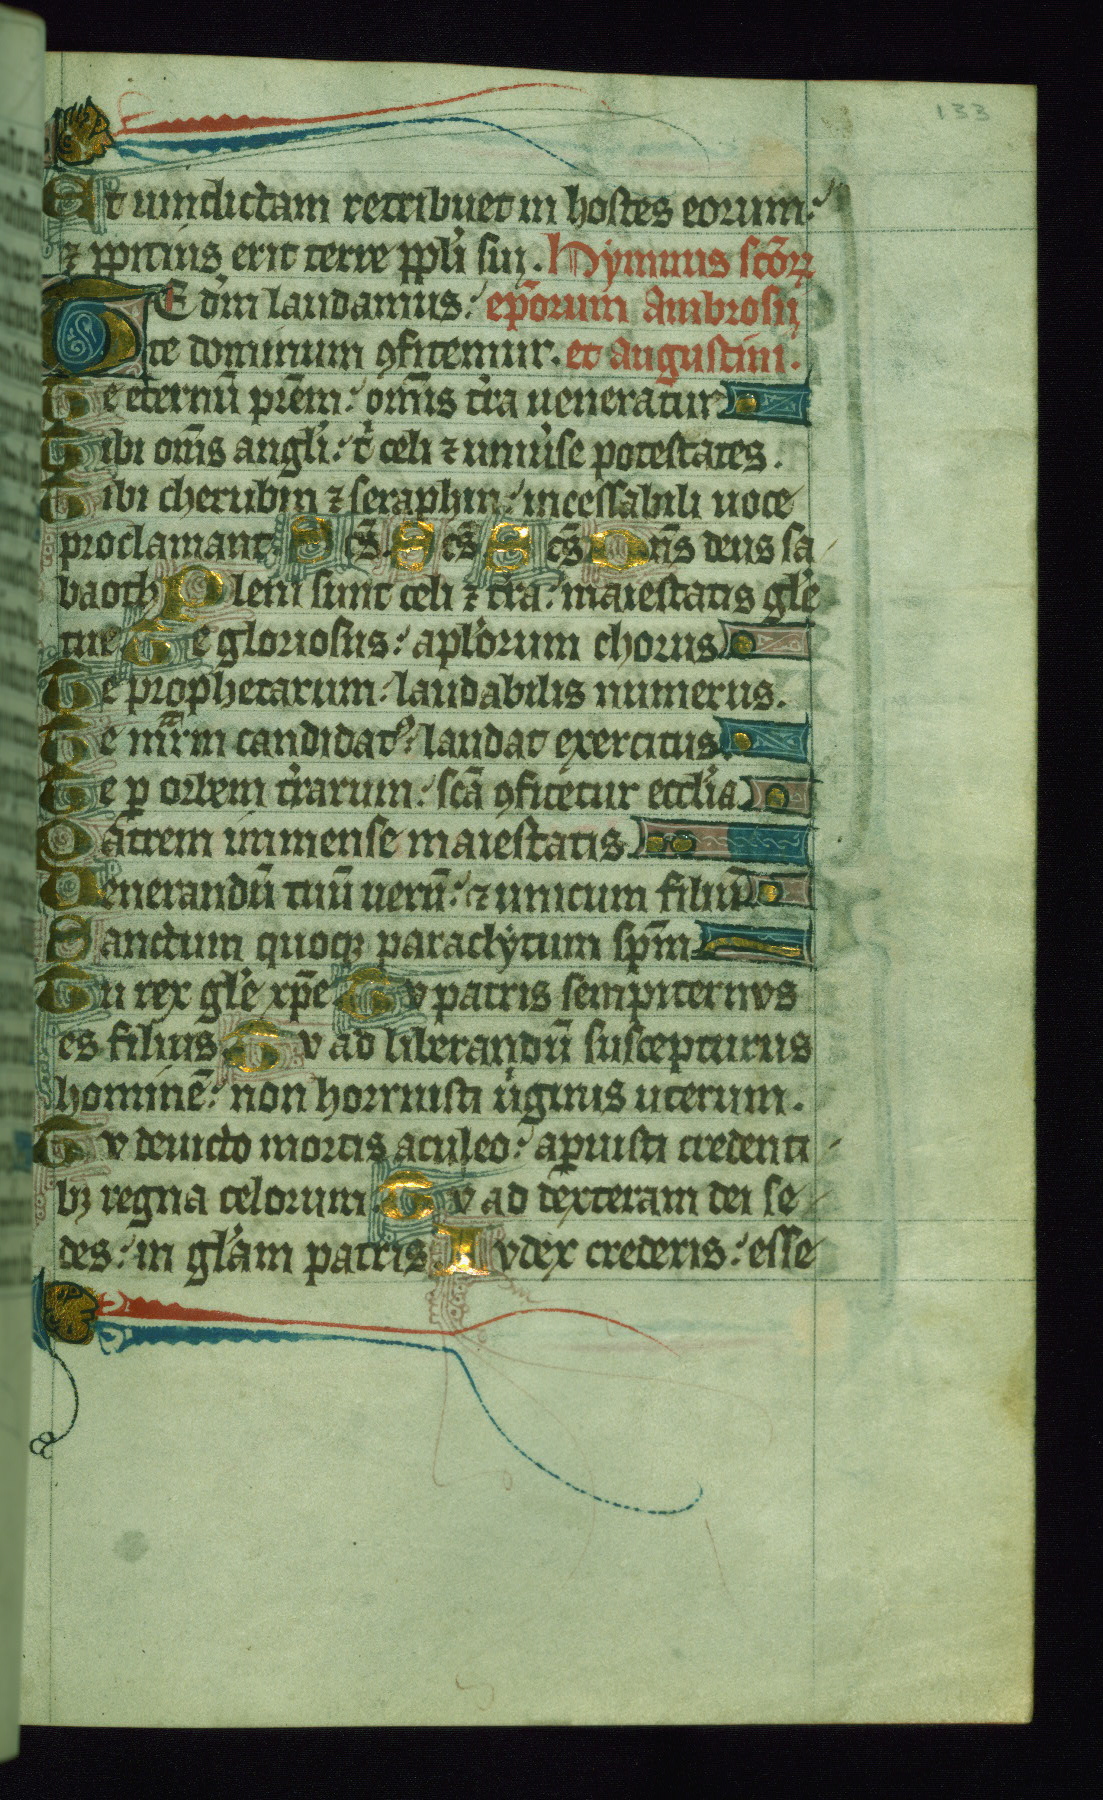 133
Et uindictam retribuet in hostes eorum:
⁊ ꝓpitius erit terre ppl'i sui. Hymnus sc̄oꝝ
TE dm̄ laudamus: ep̄orum Ambrosii
te dominum ꝯfitemur. et augustini.
Te eternū prēm: om̄is tr̄a ueneratur
Tibi om̄s angl'i: t' celi ⁊ uniu'se potestates.
Tibi cherubin ⁊ seraphin: incessabili uoce
proclamant. Sc̄s. Sc̄s Sc̄s Dn̄s deus sa
baoth Pleni sunt celi ⁊ tr̄a: maiestatis gl'e
tue. Te gloriosus: apl'orum chorus
Te prophetarum: laudabilis numerus.
Te mr̄m candidatꝰ: laudat exercitus.
Te ꝑ orbem tr̄arum: sc̄a ꝯfitetur eccl'ia
Patrem immense maiestatis
Uenerandū tuū uerū: ⁊ unicum filiū
Sanctum quoqꝫ paraclytum sp̄m
Tu rex gl'e xp̄e Tv patris sempiternvs
es filius Tv ad liberandū suscepturus
hominē: non horruisti u'ginis uterum.
Tv deuicto mortis aculeo: aꝑuisti credenti
bꝫ regna celorum. Tv ad dexteram dei se
des: in gl'am patris Ivdex crederis: esse